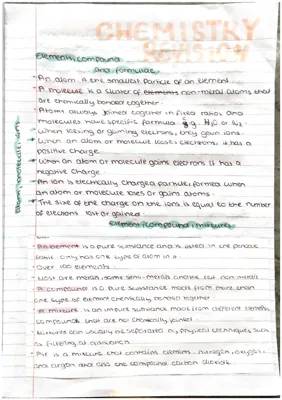 CHEMISTRY
REVISION
Elements, compound
and formulae
- An atom is the smallest particle of an element.
- A molecule is a cluster of elements non-metal atoms that
are chemically bonded together.
- Atoms always joined together in fixed ratios and
molecules have specific formula e.g. H2O or
- When losing or gaining electrons, they gain ions.
- When an atom or molecule loses electrons it has a
positive charge.
- When an atom or molecule gains electrons it has a
negative charge.
- An ion is electrically charged particle, formed when
an atom or molecule loses or gains atoms.
- The size of the charge on the ions is equal to the number
of electrons lost or gained.
Atoms, molecules, ions
Elements, compounds, mixtures
- An element is a pure substance and is listed in the periodic
table. Only has one type of atom in it.
- Over 100 elements.
- Most are metals, some semi-metals and the rest non metals
- A compound is a pure substance made from more than
one type of element chemically bonded together.
- A mixture is an impure substance made from different elements,
compounds that are not chemically joined.
- Mixtures can usually be separated by physical techniques such
as filtering or distillation.
- Air is a mixture that contains elements - nitrogen, oxygen,
and argon and also the compound carbon dioxide.